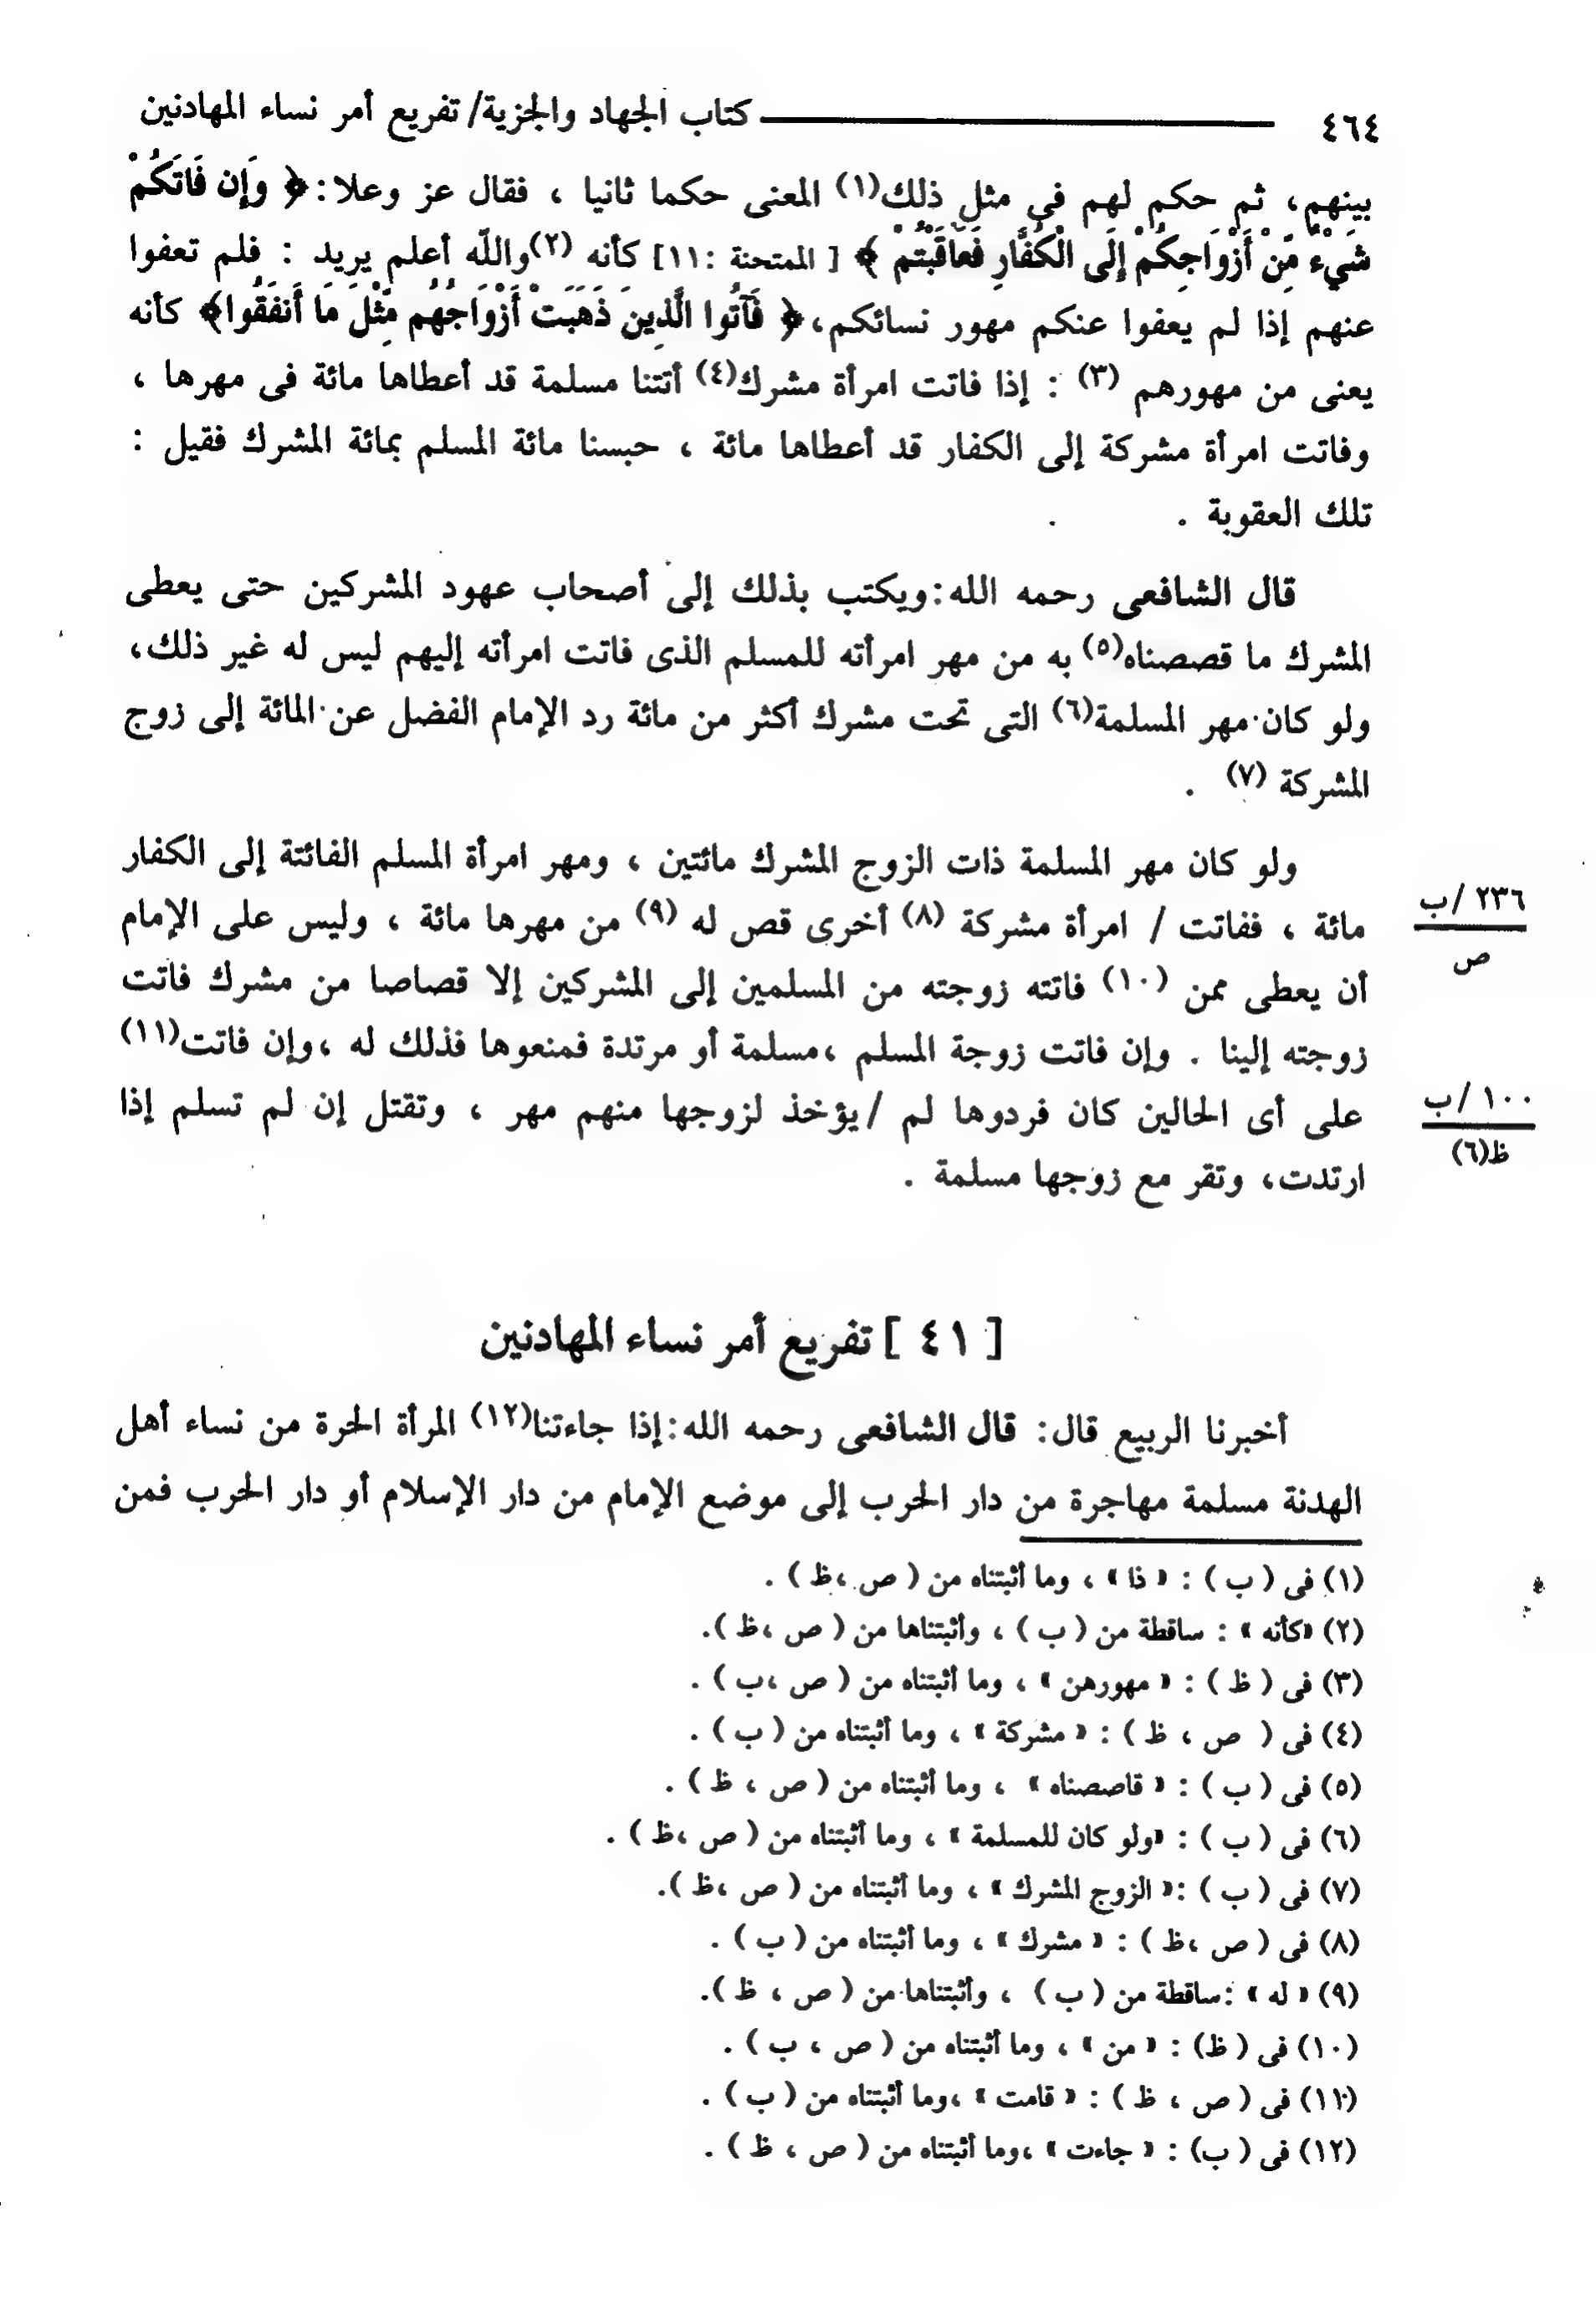 ٤٦٤ كتاب الجهاد والجزية/ تفريع أمر نساء المهادنين
بينهم، ثم حكم لهم فى مثل ذلك(١) المعنى حكما ثانيا ، فقال عز وعلا: ﴿ وَإِن فَاتَكُمْ
شَيْءٌ مِّنْ أَزْوَاجِكُمْ إِلَى الْكُفَّارِ فَعَاقَبْتُمْ ﴾ [ الممتحنة :١١] كأنه (٢)والله أعلم يريد : فلم تعفوا
عنهم إذا لم يعفوا عنكم مهور نسائكم، ﴿ فَآتُوا الَّذِينَ ذَهَبَتْ أَزْوَاجُهُم مِّثْلَ مَا أَنفَقُوا﴾ كأنه
يعنى من مهورهم (٣) : إذا فاتت امرأة مشرك(٤) أتتنا مسلمة قد أعطاها مائة فى مهرها ،
وفاتت امرأة مشركة إلى الكفار قد أعطاها مائة ، حبسنا مائة المسلم بمائة المشرك فقيل :
تلك العقوبة .
قال الشافعى رحمه الله:ويكتب بذلك إلى أصحاب عهود المشركين حتى يعطى
المشرك ما قصصناه(٥) به من مهر امرأته للمسلم الذى فاتت امرأته إليهم ليس له غير ذلك،
ولو كان مهر المسلمة(٦) التى تحت مشرك أكثر من مائة رد الإمام الفضل عن المائة إلى زوج
المشركة (٧) .
ولو كان مهر المسلمة ذات الزوج المشرك مائتين ، ومهر امرأة المسلم الفائتة إلى الكفار
٢٣٦ /ب
مائة ، ففاتت / امرأة مشركة (٨) أخرى قص له (٩) من مهرها مائة ، وليس على الإمام
ص
أن يعطى ممن (١٠) فاتته زوجته من المسلمين إلى المشركين إلا قصاصا من مشرك فاتت
زوجته إلينا . وإن فاتت زوجة المسلم ،مسلمة أو مرتدة فمنعوها فذلك له ،وإن فاتت(١١)
١٠٠ /ب
على أى الحالين كان فردوها لم /يؤخذ لزوجها منهم مهر ، وتقتل إن لم تسلم إذا
ظ(٦)
ارتدت، وتقر مع زوجها مسلمة .
[ ٤١ ] تفريع أمر نساء المهادنين
أخبرنا الربيع قال: قال الشافعى رحمه الله:إذا جاءتنا(١٢) المرأة الحرة من نساء أهل
الهدنة مسلمة مهاجرة من دار الحرب إلى موضع الإمام من دار الإسلام أو دار الحرب فمن
(١) فى ( ب ) : « ذا » ، وما أثبتناه من ( ص ،ظ ) .
(٢) «كأنه » : ساقطة من ( ب ) ، وأثبتناها من ( ص ،ظ ).
(٣) فى ( ظ ) : « مهورهن » ، وما أثبتناه من ( ص ،ب ) .
(٤) فى ( ص ، ظ ) : « مشركة » ، وما أثبتناه من ( ب ) .
(٥) فى ( ب ) : « قاصصناه » ، وما أثبتناه من ( ص ، ظ ) .
(٦) فى ( ب ) : «ولو كان للمسلمة » ، وما أثبتناه من ( ص ،ظ ) .
(٧) فى ( ب ) :« الزوج المشرك » ، وما أثبتناه من ( ص ،ظ ).
(٨) فى ( ص ،ظ ) : « مشرك » ، وما أثبتناه من ( ب ) .
(٩) « له » :ساقطة من ( ب ) ، وأثبتناها من ( ص ، ظ ).
(١٠) فى ( ظ) : « من » ، وما أثبتناه من ( ص ، ب ) .
(١١) فى ( ص ، ظ ) : « قامت » ،وما أثبتناه من ( ب ) .
(١٢) فى ( ب) : « جاءت » ،وما أثبتناه من ( ص ، ظ ) .